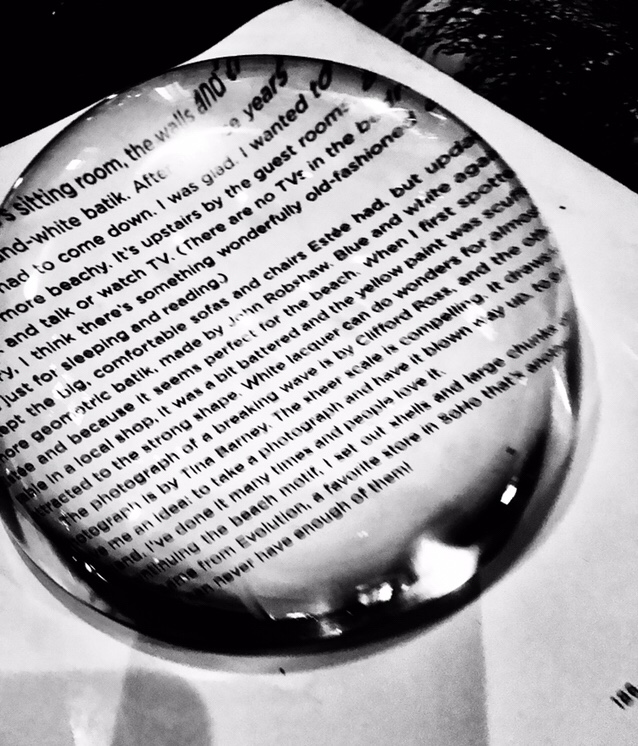 s sitting room, the walls and
and-white batik. After e years
had to come down. I was glad. I wanted to
more beachy. It's upstairs by the guest rooms
and talk or watch TV. (There are no TVs in the
ry, I think there's something wonderfully old-fashioned
just for sleeping and reading.)
ept the big, comfortable sofas and chairs Estée had, but upda
ore geometric batik, made by John Robshaw. Blue and white aga
and because it seems perfect for the beach. When I first spott
able in a local shop, it was a bit battered and the yellow paint was
attracted to the strong shape. White lacquer can do wonders for almos
The photograph of a breaking wave is by Clifford Ross, and the
otograph is by Tina Barney. The sheer scale is compelling. It
me an idea: to take a photograph and have it blown way up to
and, I've done it many times and people love it.
ntinuing the beach motif, I set out shells and large chunks
me from Evolution, a favorite store in SoHo that's
n never have enough of them!